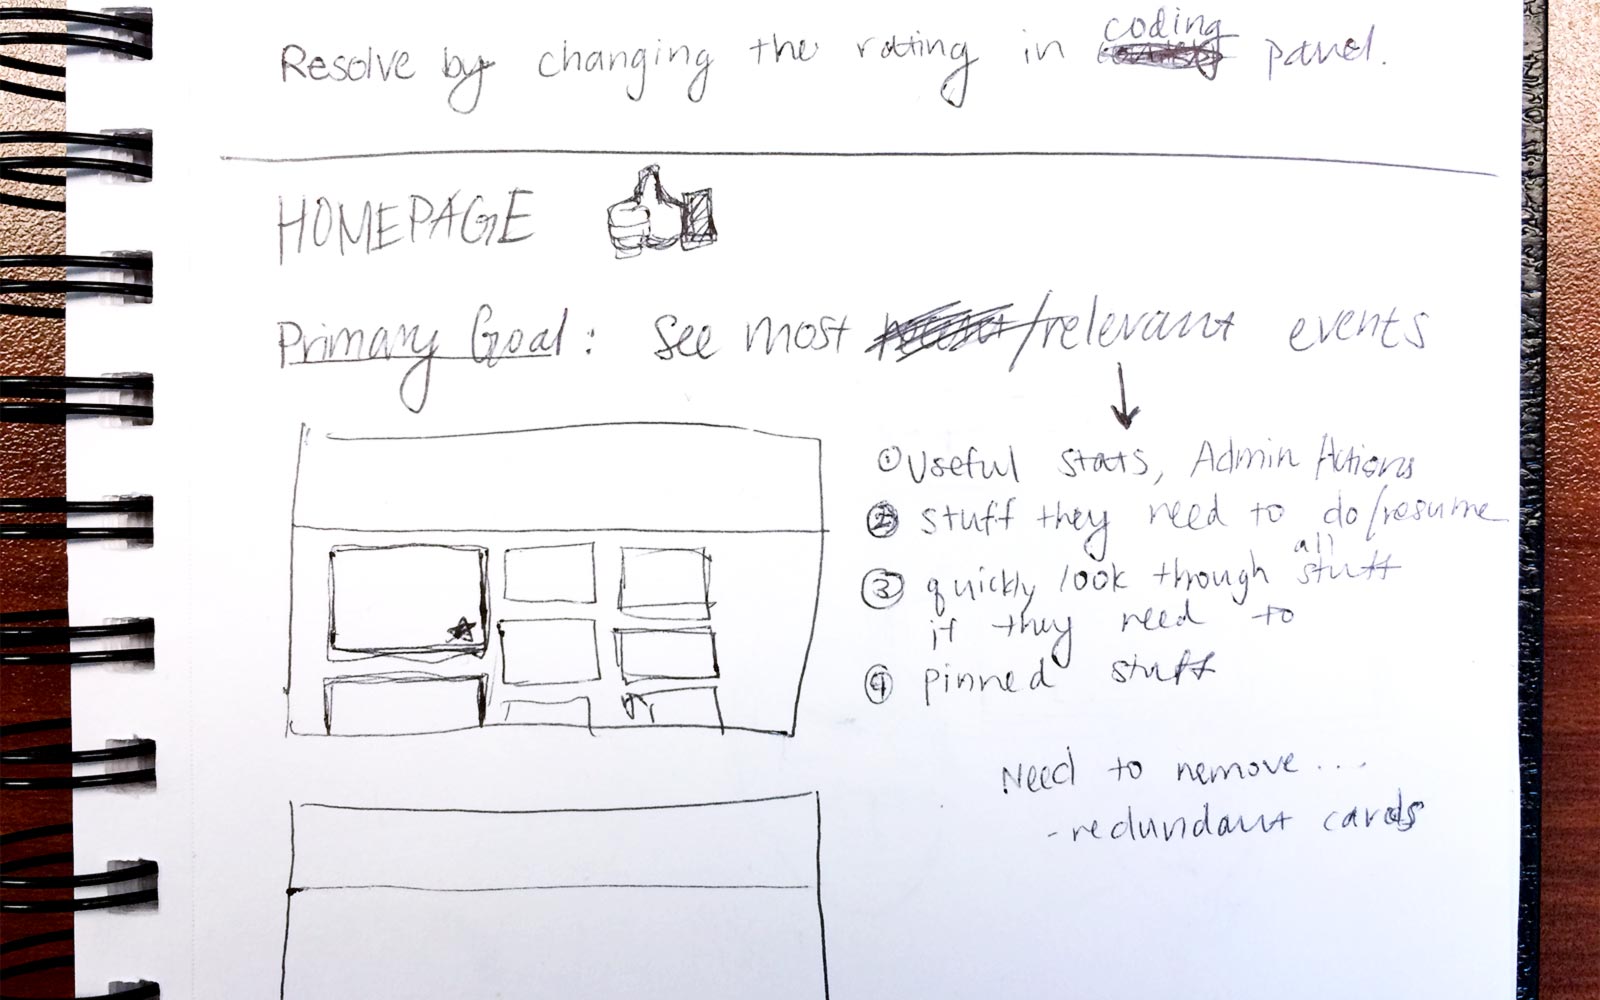 Resolve by changing the rating in coding panel.
HOMEPAGE
Primary Goal: See most /relevant events
① Useful stats, Admin Actions
② stuff they need to do/resume
③ quickly look through all stuff
if they need to
④ pinned stuff
Need to remove...
- redundant cards